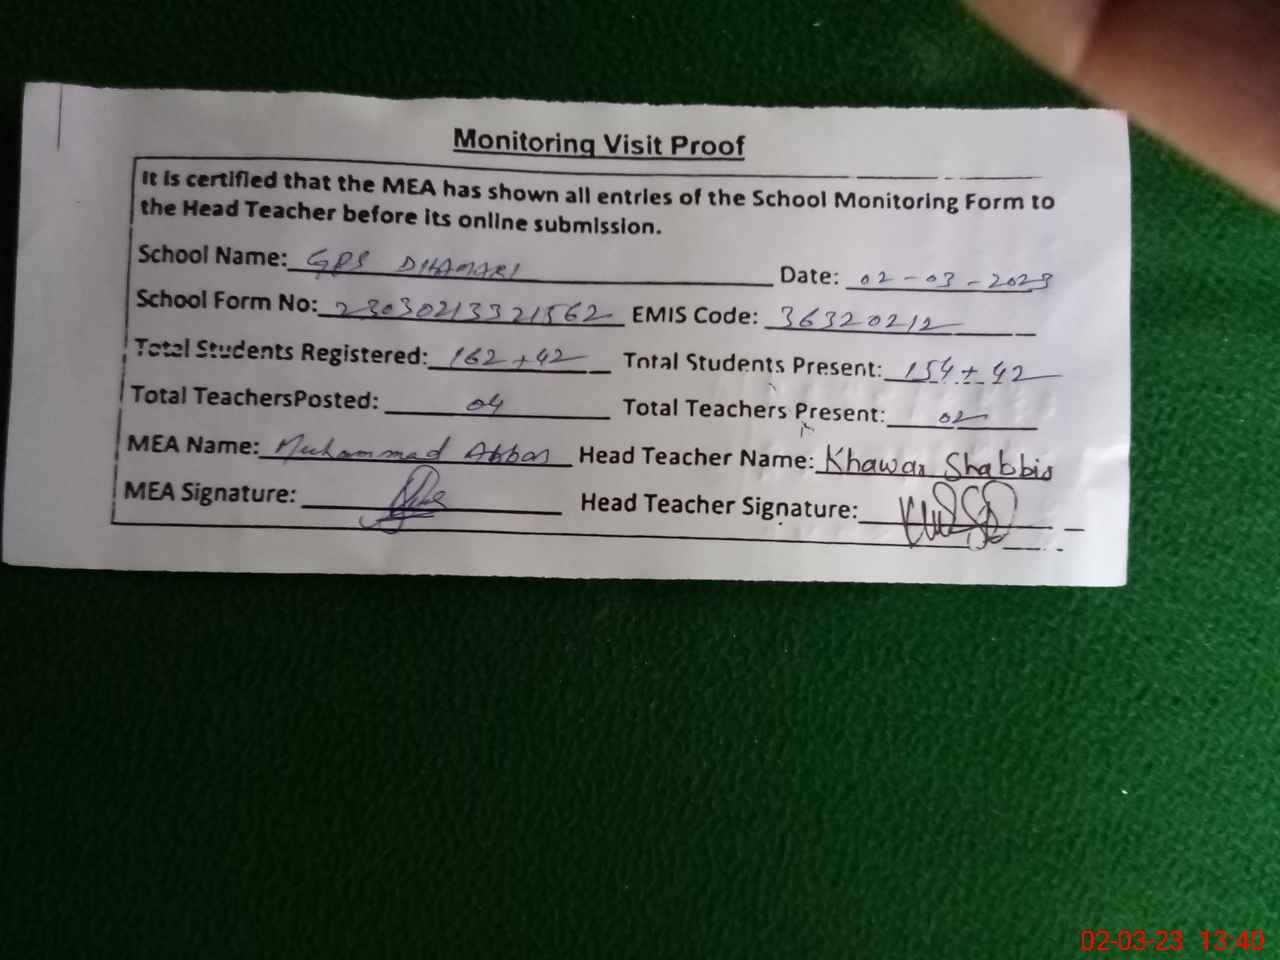 Monitoring Visit Proof
It is certified that the MEA has shown all entries of the School Monitoring Form to
the Head Teacher before its online submission.
School Name: GPS DHAMARI Date: 02-03-2023
School Form No: 23030213321562 EMIS Code: 36320212
Total Students Registered: 162+42 Total Students Present: 154+42
Total TeachersPosted: 04 Total Teachers Present: 02
MEA Name: Muhammad Abbas Head Teacher Name: Khawar Shabbir
MEA Signature: Head Teacher Signature:
02-03-23 13:40